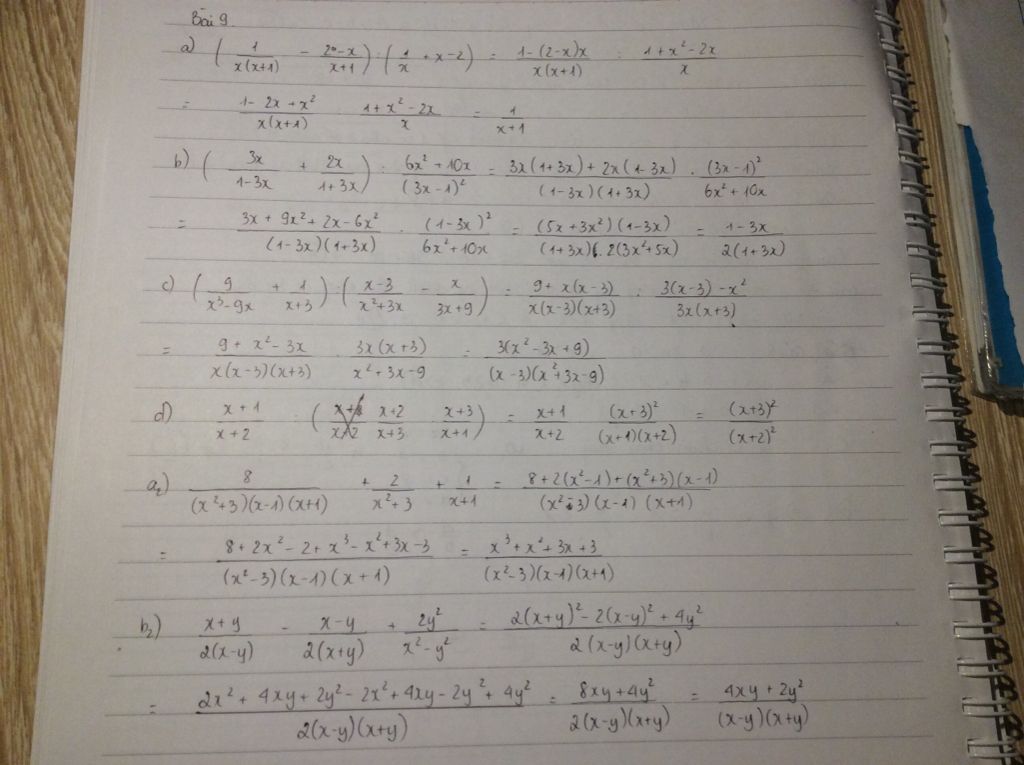 Bài 9
a) ( 1/x(x+1) - 2-x/x+1 ) : ( 1/x + x-2 ) = 1-(2-x)x/x(x+1) : 1+x²-2x/x
= 1-2x+x²/x(x+1) : 1+x²-2x/x = 1/x+1
b) ( 3x/1-3x + 2x/1+3x ) : 6x²+10x/(3x-1)² = 3x(1+3x)+2x(1-3x)/(1-3x)(1+3x) . (3x-1)²/6x²+10x
= 3x+9x²+2x-6x²/(1-3x)(1+3x) . (1-3x)²/6x²+10x = (5x+3x²)(1-3x)/(1+3x).2(3x²+5x) = 1-3x/2(1+3x)
c) ( 9/x³-9x + 1/x+3 ) : ( x-3/x²+3x - x/3x+9 ) = 9+x(x-3)/x(x-3)(x+3) : 3(x-3)-x²/3x(x+3)
= 9+x²-3x/x(x-3)(x+3) . 3x(x+3)/x²+3x-9 = 3(x²-3x+9)/(x-3)(x²+3x-9)
d) x+1/x+2 : ( x+2/x+3 : x+3/x+1 ) = x+1/x+2 : (x+3)²/(x+1)(x+2) = (x+3)²/(x+2)²
a₂) 8/(x²+3)(x-1)(x+1) + 2/x²+3 + 1/x+1 = 8+2(x²-1)+(x²+3)(x-1)/(x²-3)(x-1)(x+1)
= 8+2x²-2+x³-x²+3x-3/(x²-3)(x-1)(x+1) = x³+x²+3x+3/(x²-3)(x-1)(x+1)
b₂) x+y/2(x-y) - x-y/2(x+y) + 2y²/x²-y² = 2(x+y)²-2(x-y)²+4y²/2(x-y)(x+y)
= 2x²+4xy+2y²-2x²+4xy-2y²+4y²/2(x-y)(x+y) = 8xy+4y²/2(x-y)(x+y) = 4xy+2y²/(x-y)(x+y)